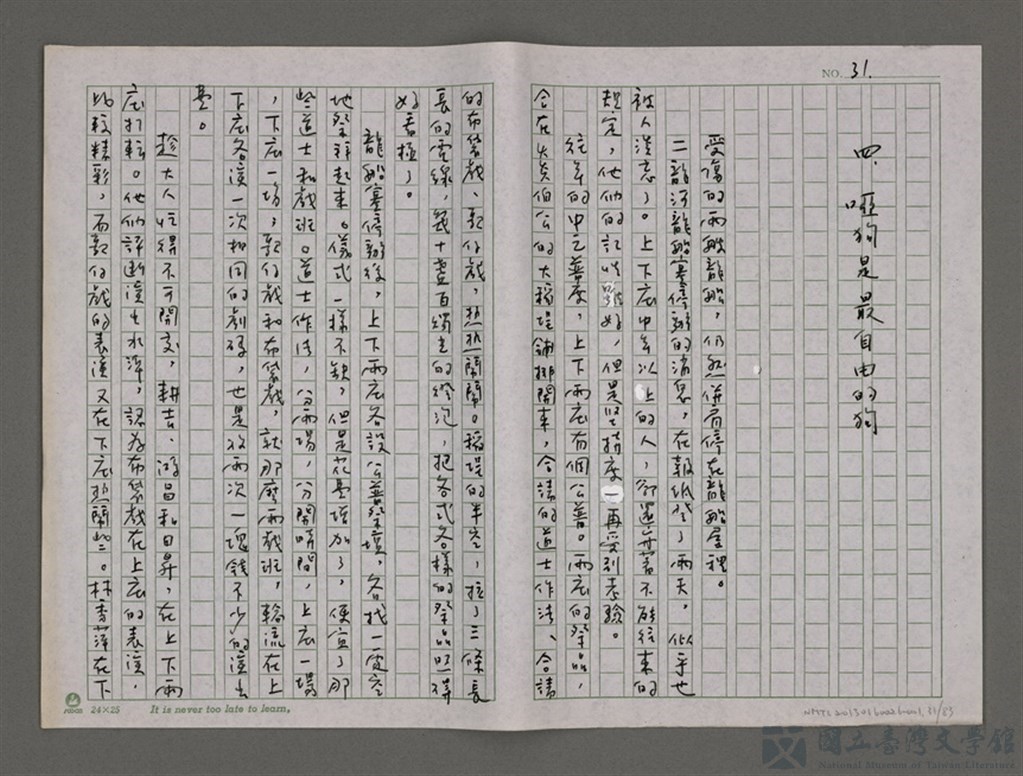 NO. 31.
四、啞狗是最自由的狗
受傷的兩艘龍船，仍然併肩停在龍船屋裡。
二龍河龍船賽停辦的消息，在報紙登了兩天，似乎也
被人淡忘了。上下庄中年以上的人，卻還守著不能往來的
規定，他們的記性雖好，但是堅持度一再受到考驗。
往年的中元普度，上下兩庄有個公普。兩庄的祭品，
合在火炎伯公的大稻埕鋪排開來，合請的道士作法、合請
的布袋戲、歌仔戲，熱熱鬧鬧。稻埕的半空，拉了三條長
長的電線，幾十盞百燭光的燈泡，把各式各樣的祭品照得
好看極了。
龍船賽停辦後，上下兩庄各設公普祭壇，各找一處空
地祭拜起來。儀式一樣不缺，但是花費增加了，便宜了那
些道士和戲班。道士作法，分兩場，分開時間，上庄一場
，下庄一場；歌仔戲和布袋戲，就那麼兩戲班，輪流在上
下庄各演一次相同的劇碼，也是收兩次一塊錢不少的演出
費。
趁大人忙得不可開交，耕土、游昌和日昇，在上下兩
庄打轉。他們評斷演出水準，認為布袋戲在上庄的表演，
比較精彩，而歌仔戲的表演又在下庄熱鬧些。林秀萍在下
24×25
It is never too late to learn.
NMTL20150160026001, 31/83
國立臺灣文學館
National Museum of Taiwan Literature